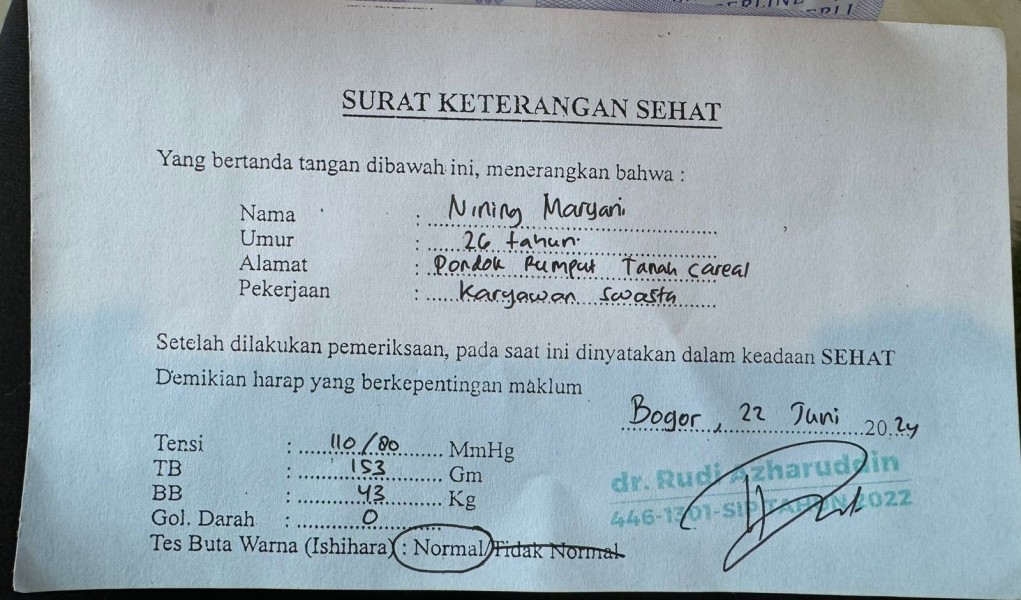 SURAT KETERANGAN SEHAT
Yang bertanda tangan dibawah ini, menerangkan bahwa :
Nama : Nining Maryani
Umur : 26 tahun
Alamat : Pondok Rumput Tanah Careal
Pekerjaan : Karyawan Swasta
Setelah dilakukan pemeriksaan, pada saat ini dinyatakan dalam keadaan SEHAT
Demikian harap yang berkepentingan maklum
Bogor, 22 Juni 2024
Tensi : 110/80 MmHg
TB : 153 Gm
BB : 43 Kg
Gol. Darah : O
Tes Buta Warna (Ishihara) : Normal/Tidak Normal
dr. Rudi Azharuddin
446-1301-SIP TAHUN 2022